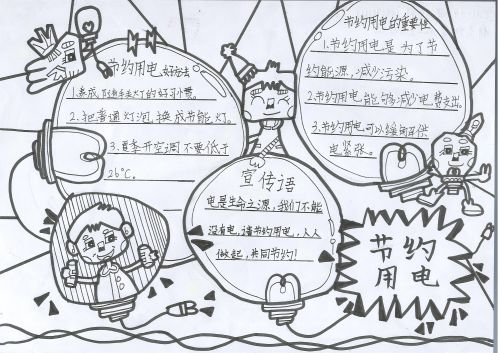 节约用电好方法
1.养成随手关灯的好习惯。
2.把普通灯泡,换成节能灯。
3.夏季开空调不要低于
26℃。
节约用电的重要性
1.节约用电是为了节
约能源,减少污染。
2.节约用电能够减少电费支出。
3.节约用电可以缓解供
电紧张。
宣传语
电是生命之源,我们不能
没有电,请节约用电,人人
做起,共同节约!
节约
用电